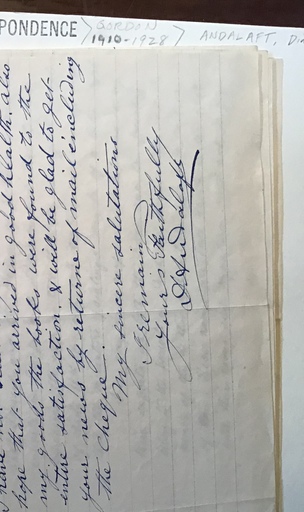 I have no
hope that you arrived in good health. also
my goods the books were found to the
entire satisfaction. & will be glad to get
your news by returne of mail including
the Cheque.
My sincere salutations
I remain
Your's Faithfully
D. Andalaft
PONDENCE
GORDON
1910-1928
ANDALAFT, D